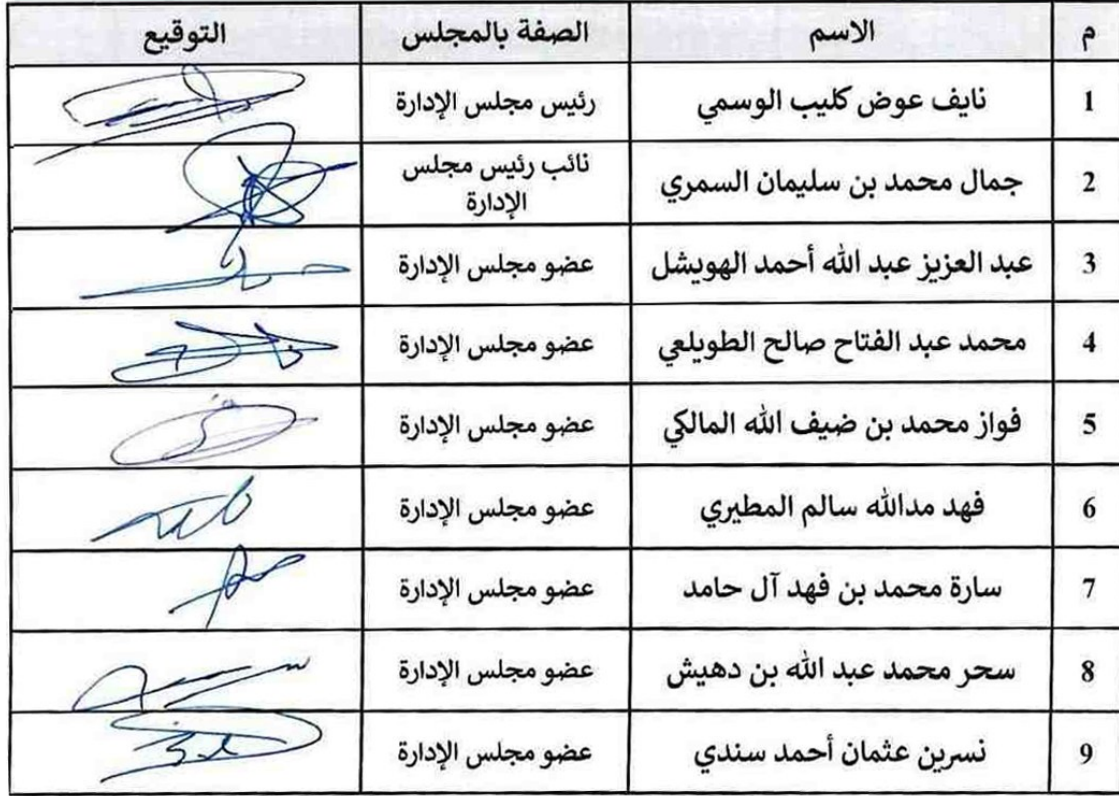 م الاسم الصفة بالمجلس التوقيع
1 نايف عوض كليب الوسمي رئيس مجلس الإدارة
2 جمال محمد بن سليمان السمري نائب رئيس مجلس
الإدارة
3 عبد العزيز عبد الله أحمد الهويشل عضو مجلس الإدارة
4 محمد عبد الفتاح صالح الطويلعي عضو مجلس الإدارة
5 فواز محمد بن ضيف الله المالكي عضو مجلس الإدارة
6 فهد مدالله سالم المطيري عضو مجلس الإدارة
7 سارة محمد بن فهد آل حامد عضو مجلس الإدارة
8 سحر محمد عبد الله بن دهيش عضو مجلس الإدارة
9 نسرين عثمان أحمد سندي عضو مجلس الإدارة